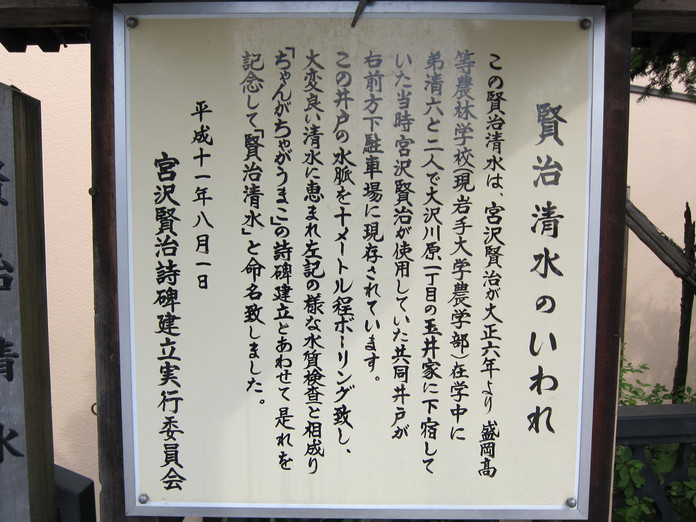 賢治清水のいわれ
この賢治清水は、宮沢賢治が大正六年より 盛岡高
等農林学校(現岩手大学農学部)在学中に
弟清六と二人で大沢川原一丁目の玉井家に下宿して
いた当時宮沢賢治が使用していた共同井戸が
右前方下駐車場に現存されています。
この井戸の水脈を十メートル程ボーリング致し、
大変良い清水に恵まれ左記の様な水質検査と相成り
「ちゃんがちゃがうまこ」の詩碑建立とあわせて是れを
記念して「賢治清水」と命名致しました。
平成十一年八月一日
宮沢賢治詩碑建立実行委員会
賢治清水